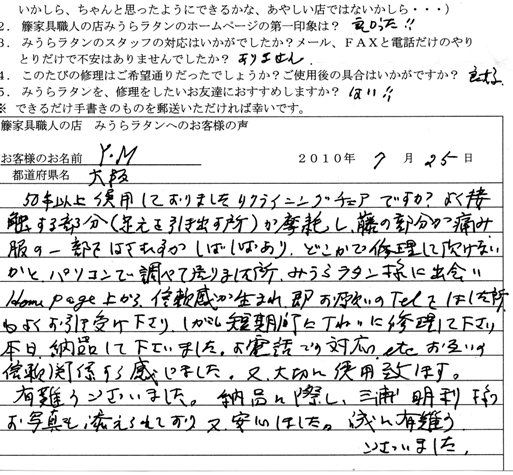 いかしら、ちゃんと思ったようにできるかな、あやしい店ではないかしら・・・）
２．籐家具職人の店みうらラタンのホームページの第一印象は？ 良かった!!
３．みうらラタンのスタッフの対応はいかがでしたか？メール、ＦＡＸと電話だけのやり
とりだけで不安はありませんでしたか？ ありません
４．このたびの修理はご希望通りだったでしょうか？ご使用後の具合はいかがですか？
５．みうらラタンを、修理をしたいお友達におすすめしますか？ はい!!
※ できるだけ手書きのものを郵送いただければ幸いです。
籐家具職人の店 みうらラタンへのお客様の声
お客様のお名前 Y.M ２０１０年 7 月 25 日
都道府県名 大阪
50年以上使用しておりましたリクライニングチェアですが？よく接
触する部分（足元を引き出す所）が摩耗し、藤の部分が痛み
服の一部をはさむ事がしばしばあり、どこかで修理して頂けない
かと、パソコンで調べて居りました所、みうらラタン様に出会い
Home page上から、信頼感が生まれ即お伺いのTelをしました所
心よくお引き受け下さり、しかも短期間にていねいに修理して下さり
本日、納品して下さいました。お電話での対応、etc お互いの
信頼関係する感じました。又、大切に使用致します。
有難うございました。納品に際し、三浦明利様の
お写真も添えられており又、安心しました。誠に有難う
ございました。